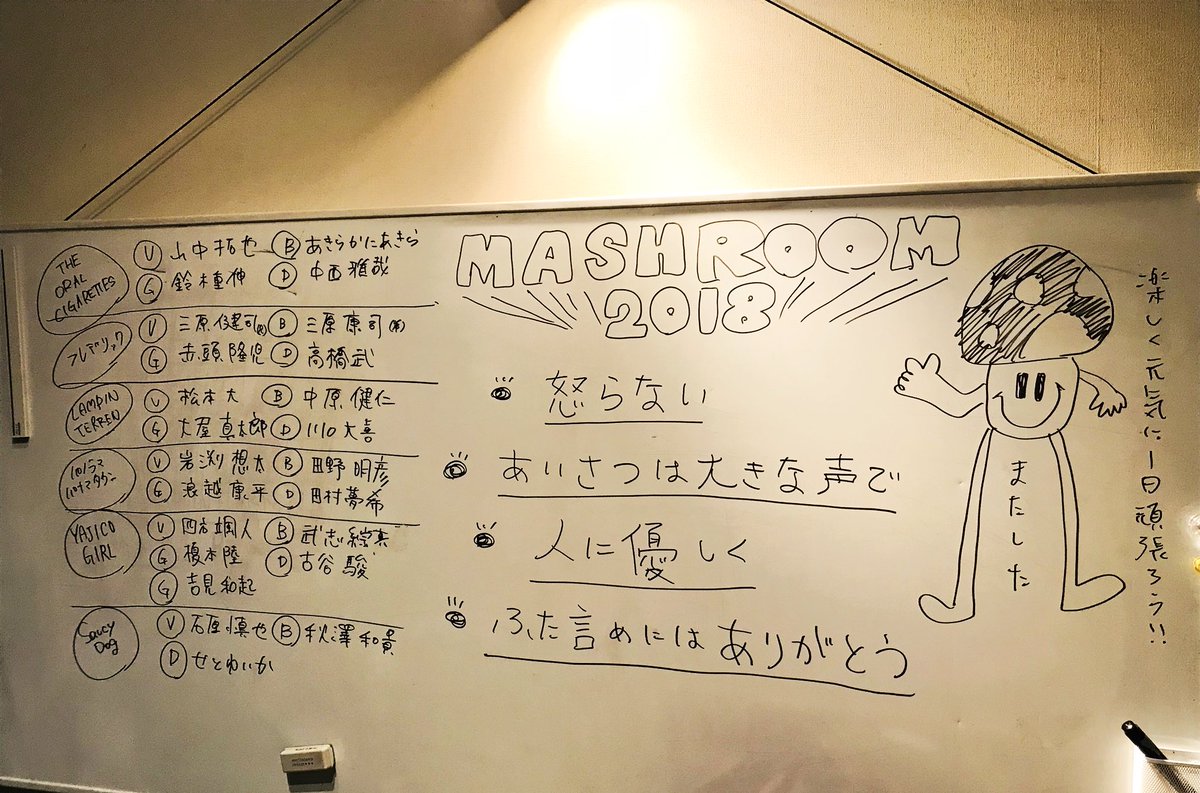 THE ORAL CIGARETTES
Ⓥ 山中拓也 Ⓑ あきらかにあきら
Ⓖ 鈴木重伸 Ⓓ 中西雅哉
フレデリック
Ⓥ 三原健司 Ⓑ 三原康司
Ⓖ 赤頭隆児 Ⓓ 高橋武
LAMP IN TERREN
Ⓥ 松本大 Ⓑ 中原健仁
Ⓖ 大屋真太郎 Ⓓ 川口大喜
パノラマパナマタウン
Ⓥ 岩渕想太 Ⓑ 田野明彦
Ⓖ 浪越康平 Ⓓ 田村夢希
YAJICO GIRL
Ⓥ 四方颯人 Ⓑ 武志綜真
Ⓖ 榎本陸 Ⓓ 古谷駿
Ⓖ 吉見和起
Saucy Dog
Ⓥ 石原慎也 Ⓑ 秋澤和貴
Ⓓ せとゆいか
MASHROOM
2018
怒らない
あいさつは大きな声で
人に優しく
ふた言めにはありがとう
またした
楽しく元気に1日頑張ろう!!